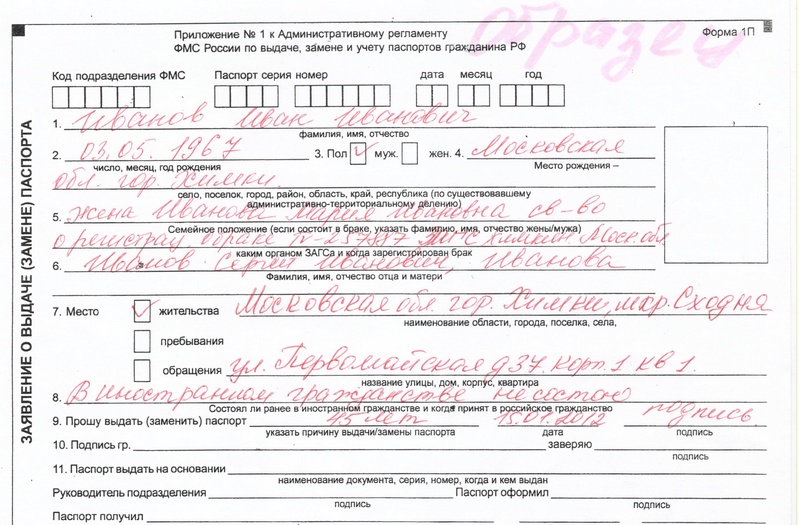 Приложение № 1 к Административному регламенту
ФМС России по выдаче, замене и учету паспортов гражданина РФ
Форма 1П
образец
ЗАЯВЛЕНИЕ О ВЫДАЧЕ (ЗАМЕНЕ) ПАСПОРТА
Код подразделения ФМС Паспорт серия номер дата месяц год
1. Иванов Иван Иванович
фамилия, имя, отчество
2. 03.05.1967 3. Пол муж. жен. 4. Московская
число, месяц, год рождения Место рождения –
обл. гор. Химки
село, поселок, город, район, область, край, республика (по существовавшему
административно-территориальному делению)
5. жена Иванова Мария Ивановна св-во
Семейное положение (если состоит в браке, указать фамилию, имя, отчество жены/мужа)
о регистрац о браке N-257887 Химки Моск. обл
каким органом ЗАГСа и когда зарегистрирован брак
6. Иванов Сергей Иванович, Иванова
Фамилия, имя, отчество отца и матери
7. Место жительства Московская обл. гор. Химки, мкр. Сходня
наименование области, города, поселка, села,
пребывания
обращения ул. Первомайская д 37. корп. 1 кв 1.
название улицы, дом, корпус, квартира
8. В иностранном гражданстве не состою
Состоял ли ранее в иностранном гражданстве и когда принят в российское гражданство
9. Прошу выдать (заменить) паспорт 45 лет 15.01.2012 подпись
указать причину выдачи/замены паспорта дата подпись
10. Подпись гр. заверяю
подпись
11. Паспорт выдать на основании
наименование документа, серия, номер, когда и кем выдан
Руководитель подразделения Паспорт оформил
подпись подпись
Паспорт получил